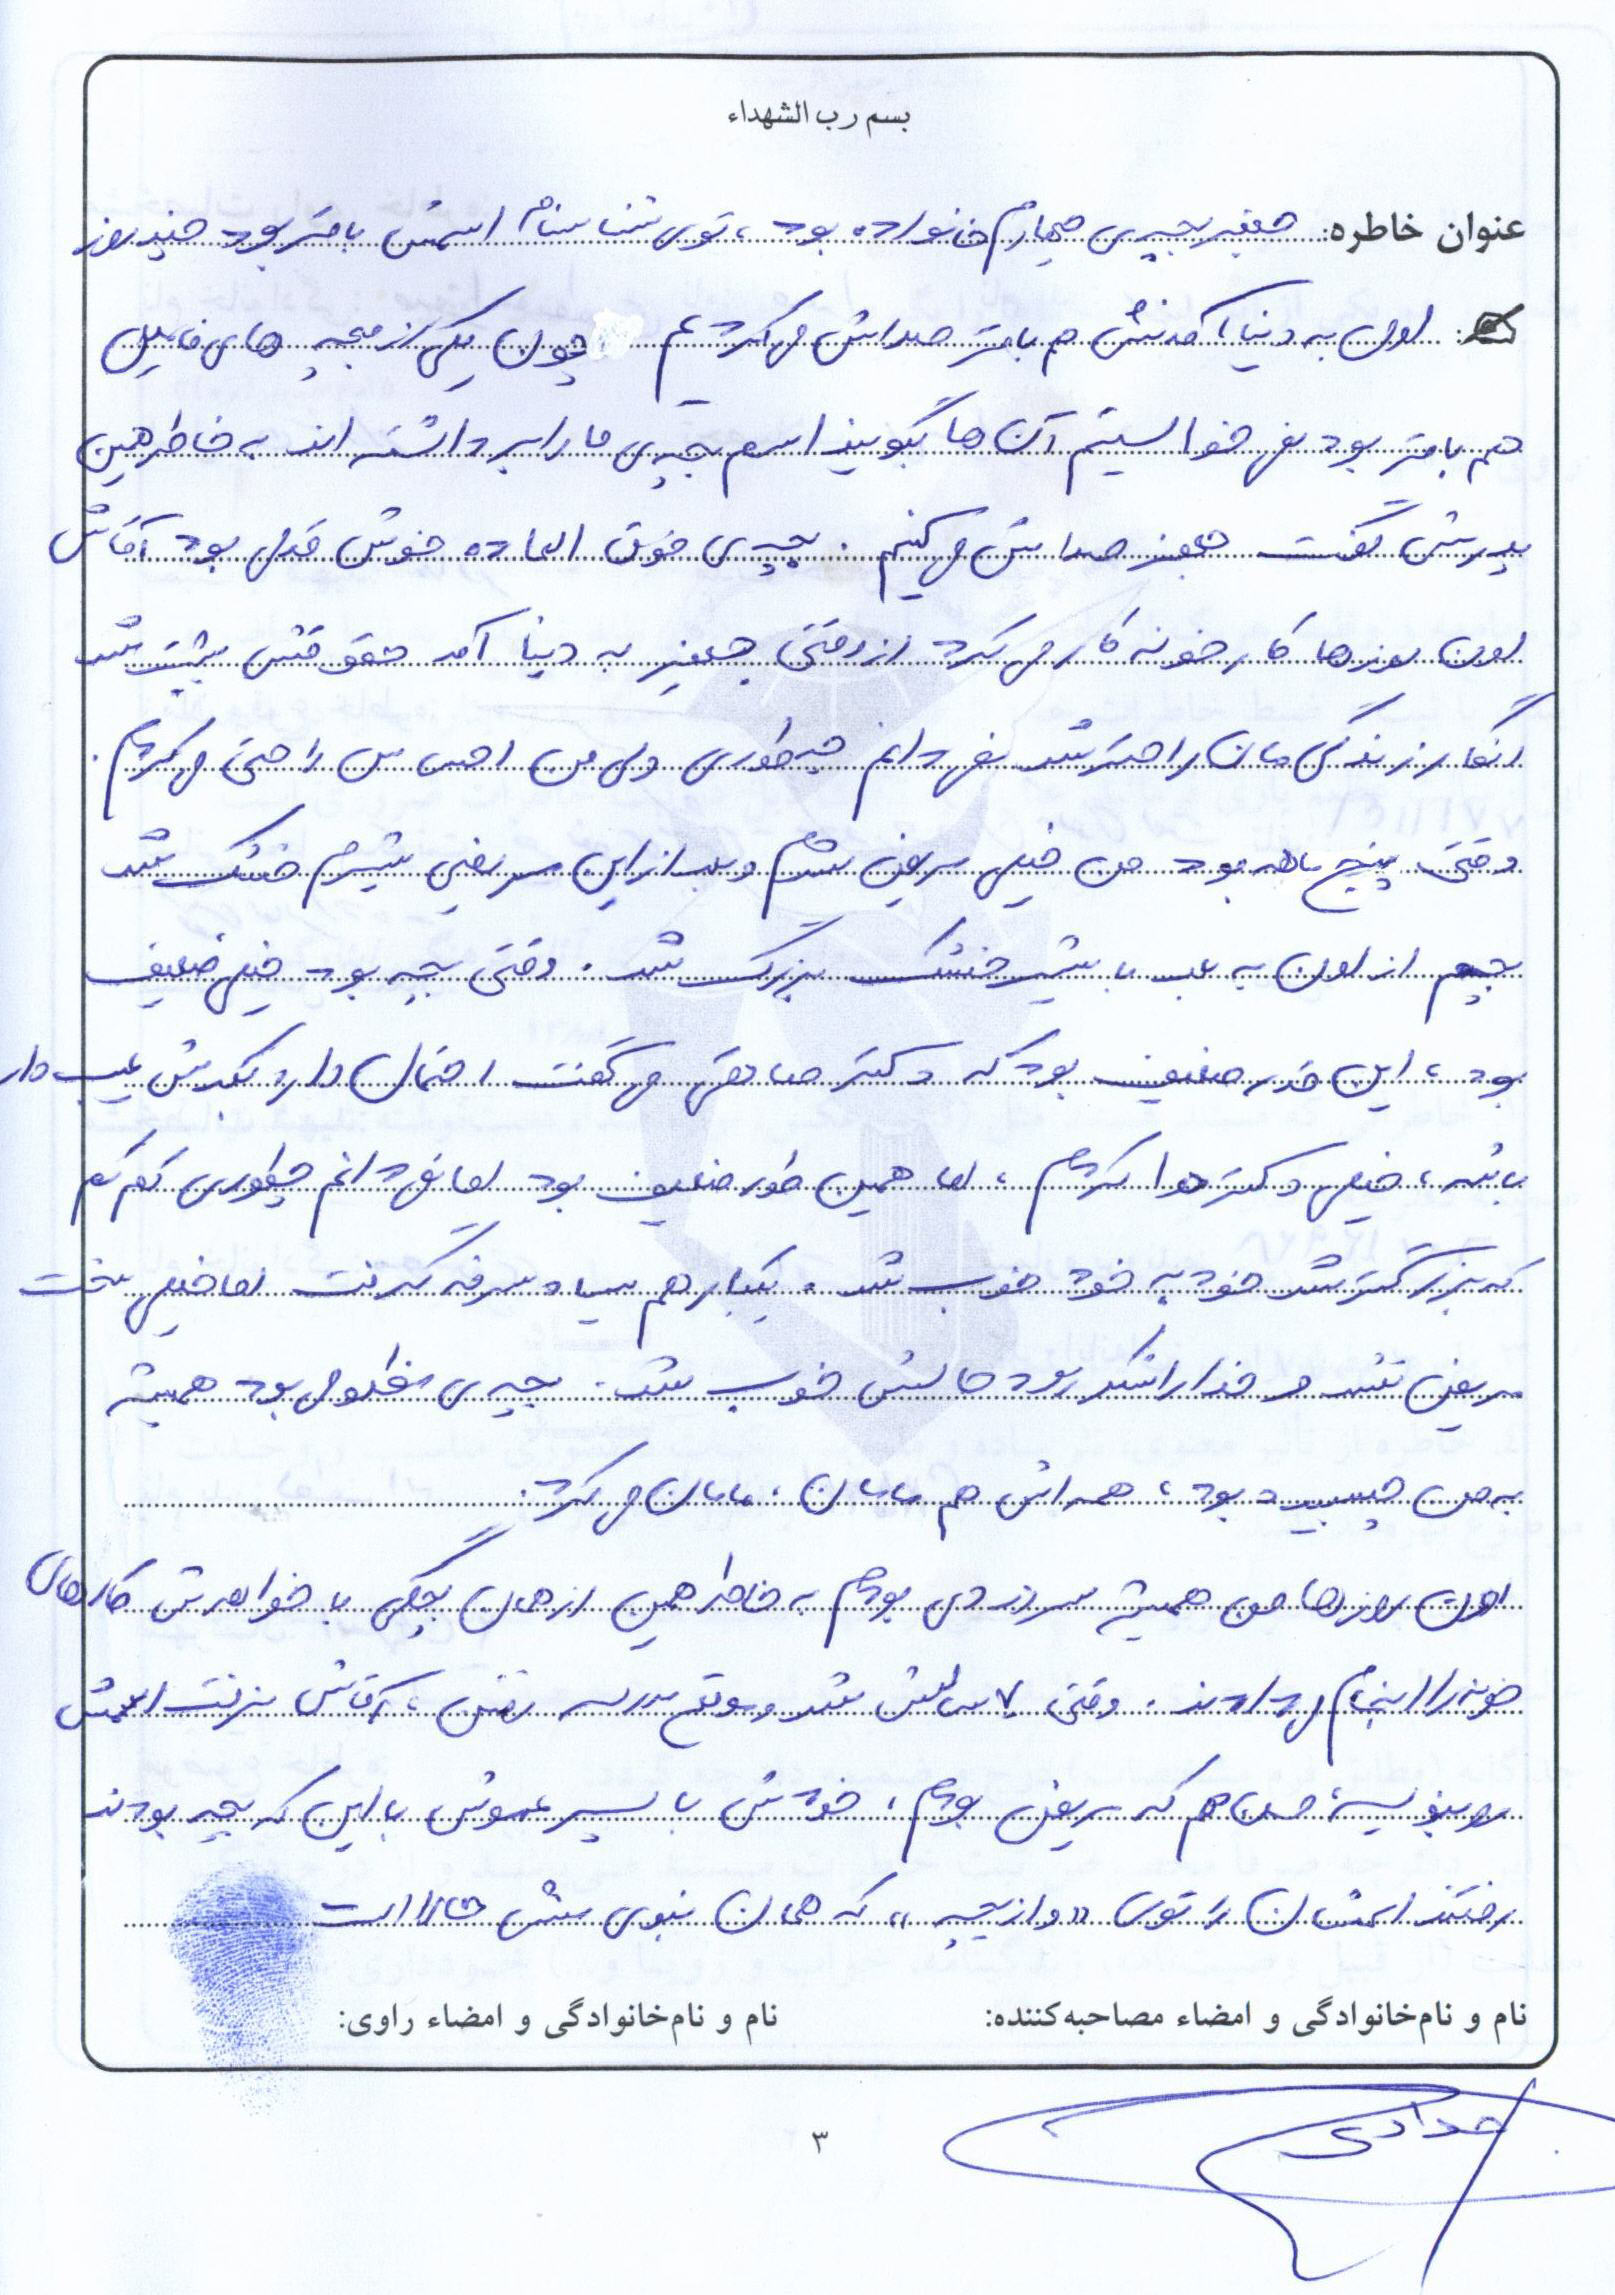 بسم رب الشهداء
عنوان خاطره: جعفر بچه‌ی چهارم خانواده بود، توی شناسنامه اسمش باقر بود چند روز
اول به دنیا آمدنش هم باقر صدایش می‌کردیم چون یکی از بچه های فامیل
هم باقر بود نمی خواستیم آن ها بگویند اسم بچه‌ی ما را برداشته اند به خاطر همین
پدرش گفت جعفر صدایش می‌کنیم. بچه‌ی فوق العاده خوش قدمی بود آقاش
اون روزها کارخونه کار می‌کرد از وقتی جعفر به دنیا آمد حقوقش بیشتر شد
انگار زندگی مان راحتتر شد نمی دانم چه طوری ولی من احساس راحتی می‌کردم.
وقتی پنج ماهه بود من خیلی مریض شدم و بعد از این مریضی شیرم خشک شد
بچم از اون به بعد با شیر خشک بزرگ شد. وقتی بچه بود خیلی ضعیف
بود، این قدر ضعیف بود که دکتر صادقی می‌گفت احتمال دارد کبدش عیب دار
باشه، خیلی دکتر دوا کردم، اما همین طور ضعیف بود اما نمی دانم چطوری کم کم
که بزرگتر شد خود به خود خوب شد. یکبار هم سیاه سرفه گرفت اما خیلی سخت
مریض نشد و خدا را شکر زود حالش خوب شد. بچه‌ی مظلومی بود همیشه
به من چسبیده بود، همه اش هم مامان، مامان می‌کرد.
اون روزها من همیشه سردردی بودم به خاطر همین از همان بچگی با خواهرش کارهای
خونه را انجام می‌دادند. وقتی ۷ سالش شد و موقع مدرسه رفتن، آقاش نرفت اسمش
رو بنویسه، من هم که مریض بودم، خودش با پسر عموش با این که بچه بودند
رفتند اسمشان را توی «وازیچه» که همان نبوی منش حالا است
نام و نام‌خانوادگی و امضاء مصاحبه‌کننده: نام و نام‌خانوادگی و امضاء راوی:
حدادی
۳